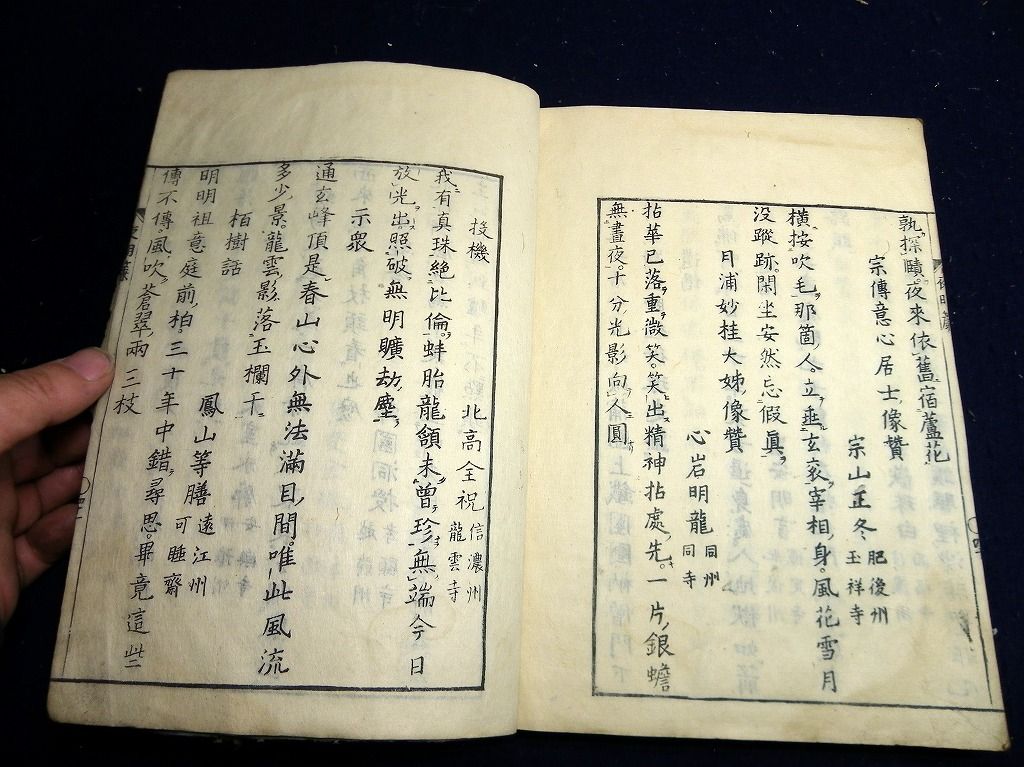 孰探賾。夜來依舊宿蘆花
宗傳意心居士像贊 宗山正冬 肥後州 玉祥寺
橫按吹毛那箇人。立垂玄衮宰相身。風花雪月
沒蹤跡。閑坐安然忘假眞
月浦妙桂大姊像贊 心岩明龍 同州 同寺
拈華已落重微笑。笑出精神拈處先。一片銀蟾
無晝夜。十分光影向人圓
投機 北高全祝 信濃州 龍雲寺
我有真珠絕比倫。蚌胎龍頷未曾珍。無端今日
放光出。照破無明曠劫塵
示衆
通玄峰頂是春山。心外無法滿目間。唯此風流
多少景。龍雲影落玉欄干
栢樹話 鳳山等膳 遠江州 可睡齋
明明祖意庭前栢。三十年中錯尋思。畢竟這些
傳不傳。風吹蒼翠兩三枝